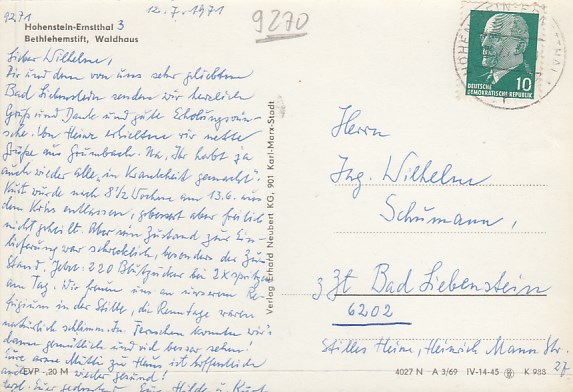 9271
12.7.1971
9270
Hohenstein-Ernstthal 3
Bethlehemstift, Waldhaus
Lieber Wilhelm,
Dir und dem von uns sehr geliebten
Bad Liebenstein senden wir herzlich
Gruß und Dank und gute Erholungswün-
sche. Von Heinz erhielten wir nette
Grüße aus Grumbach. Na, Ihr habt ja
auch wieder alle in Krankheit gemacht.
Kurt wurde nach 8½ Wochen am 13.6. aus
dem Krhs entlassen, gebessert aber freilich
nicht geheilt. Aber ein Zustand zur Ein-
lieferung war schrecklich, besonders der Zu-
stand. Jetzt 220 Blutzucker bei 2x spritzen
am Tag. Wir freuen uns an unserem Re-
fugium in der Stille, die Renntage waren
natürlich schlimm. Im Fernsehen konnten wir's
dann gemütlich und viel besser sehen!
Eure arme Mutti zu Haus ist hoffentlich
auch wieder gesund!
Hilde u. Kurt
EVP -,20 M
Verlag Erhard Neubert KG, 901 Karl-Marx-Stadt
10
DEUTSCHE
DEMOKRATISCHE REPUBLIK
Herrn
Ing. Wilhelm
Schumann,
z Zt Bad Liebenstein
6202
Stilles Heim, Heinrich Mann Str.
27
4027 N A 3/69 IV-14-45 K 988